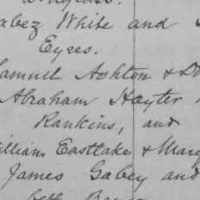 abez White and
Eyres.
Samuel Ashton &
Abraham Hayter
Rankins, and
William Eastlake & Mary
James Gabey and